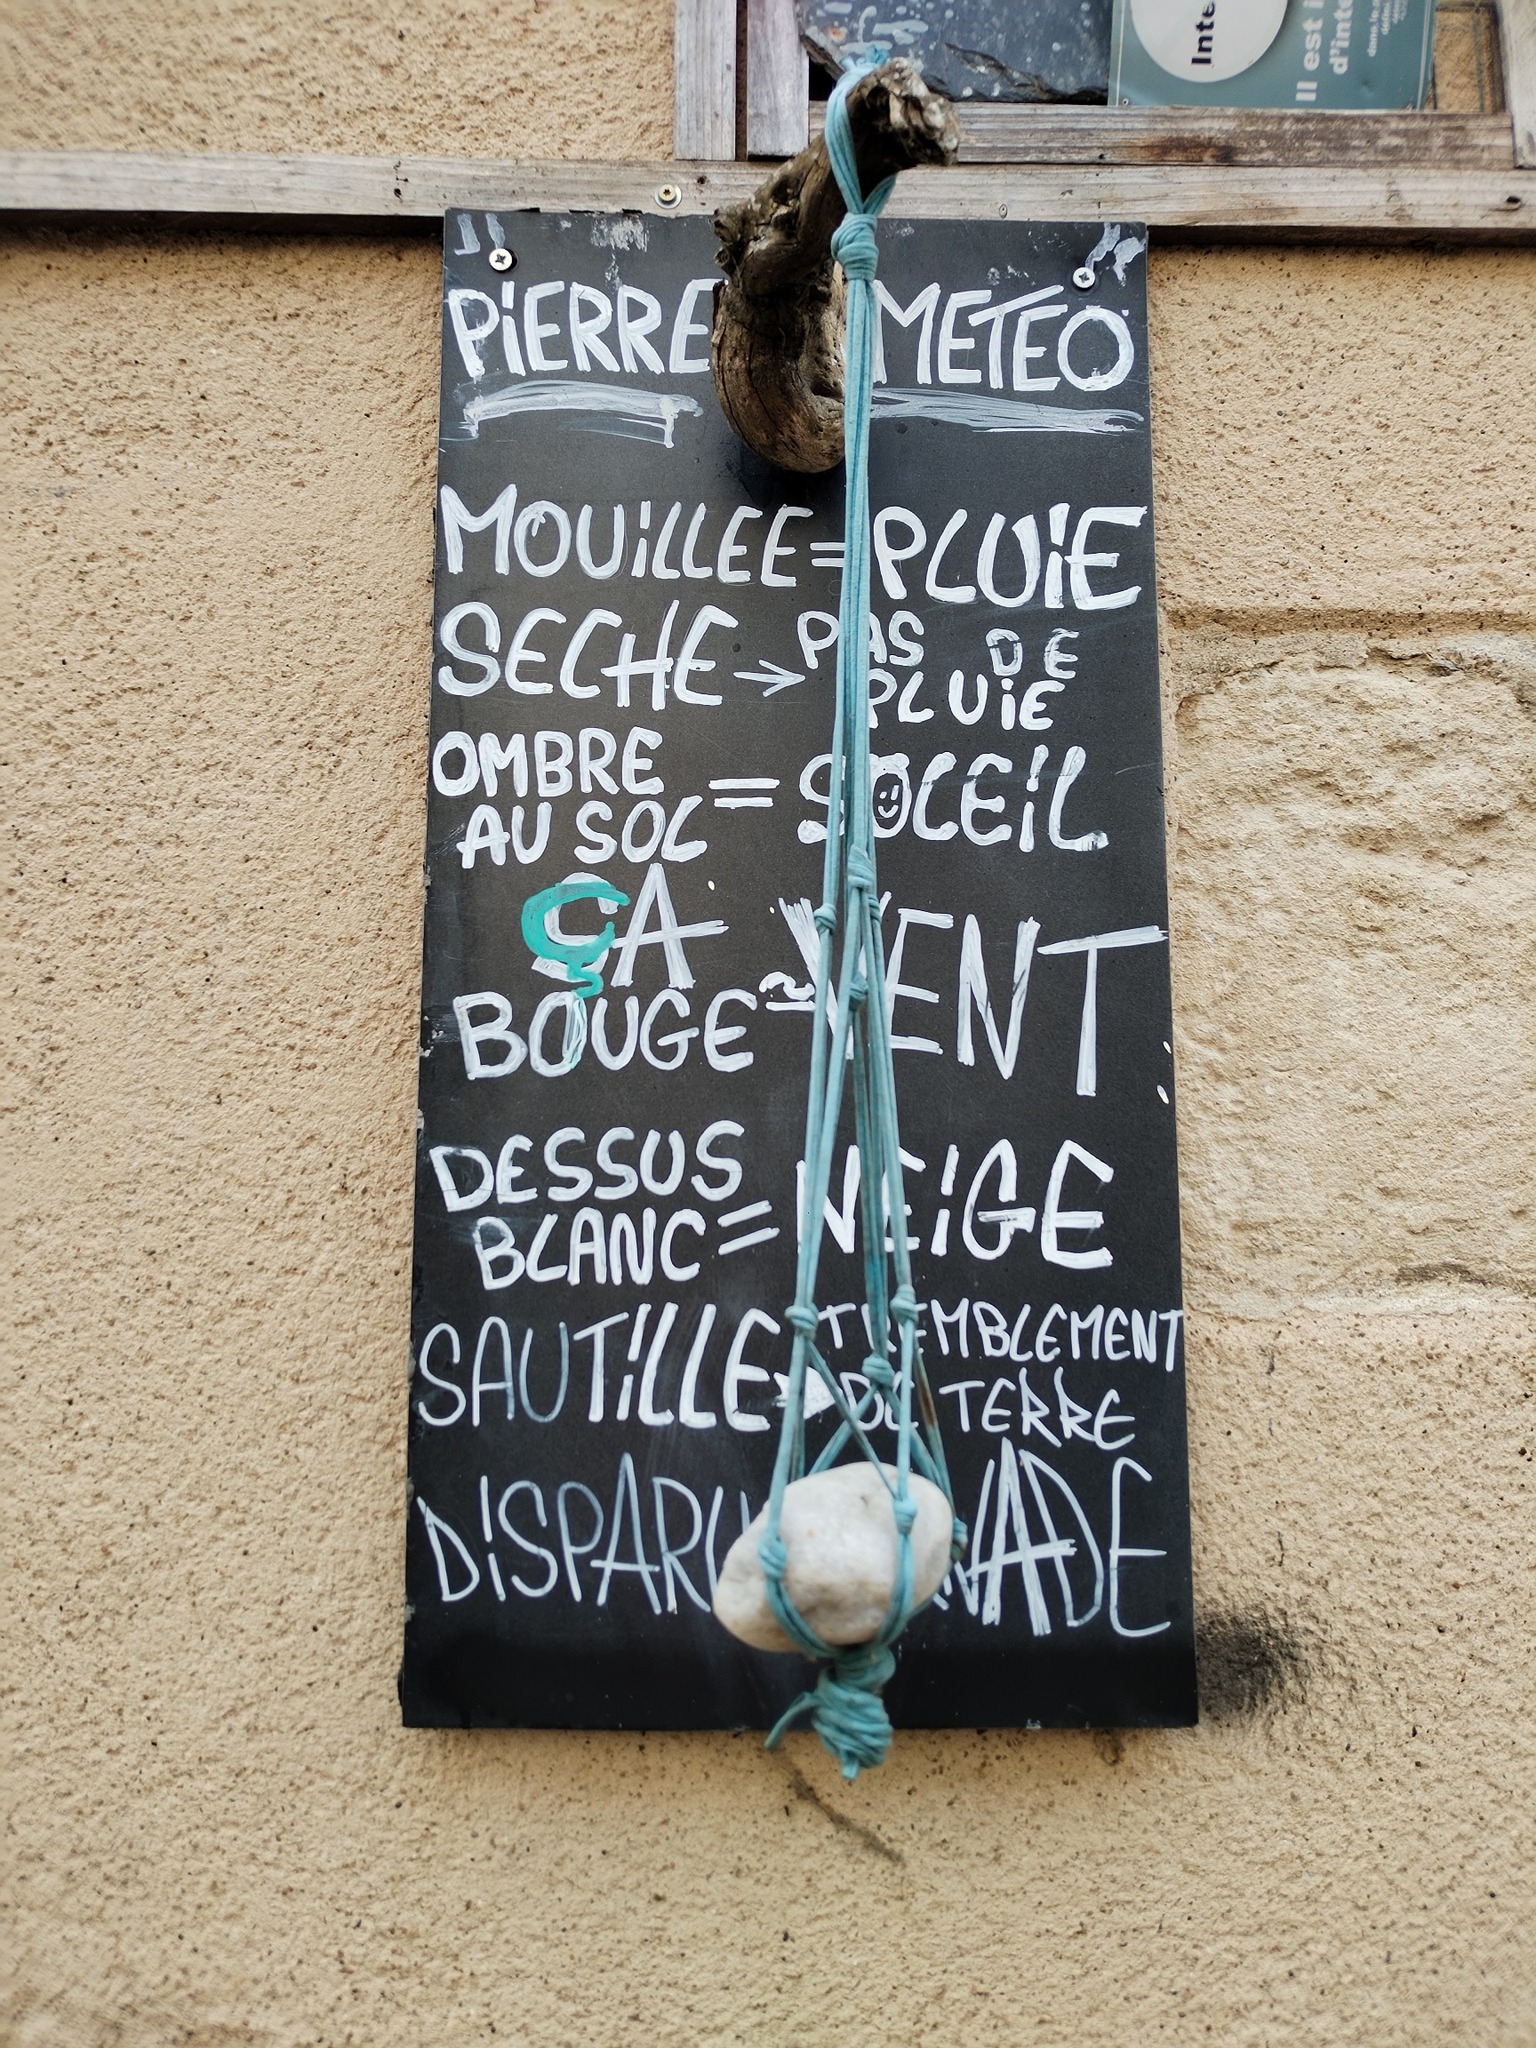 Inte
Il est i
d'inte
PiERRE METÉO
MOUiLLEE = PLUiE
SECHE → PAS DE
PLUiE
OMBRE
AU SOL = SOLEiL
ÇA
BOUGE = VENT
DESSUS
BLANC = NEiGE
SAUTiLLE → TREMBLEMENT
DE TERRE
DiSPARU